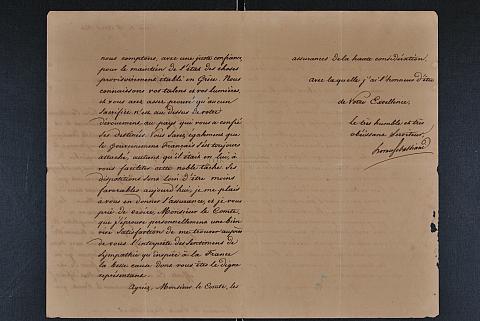 nous comptons, avec une juste confiance,
pour le maintien de l'état des choses
provisoirement établi en Grèce. Nous
connaissons vos talens et vos lumières,
et vous avez assez prouvé qu'aucun
sacrifice n'est au dessus de votre
dévouement au pays qui vous a confié
ses destinées. Vous savez également que
le Gouvernement Français s'est toujours
attaché, autant qu'il était en lui, à
vous faciliter cette noble tâche. Ses
dispositions sont loin d'être moins
favorables aujourd'hui, je me plais
à vous en donner l'assurance, et je vous
prie de croire, Monsieur le Comte,
que j'éprouve personnellement une bien
vive satisfaction de me trouver auprès
de vous l'interprète des sentimens de
sympathie qu'inspire à la France
la belle cause dont vous êtes le digne
représentant.
Agréez, Monsieur le Comte, les
assurances de la haute considération
avec laquelle j'ai l'honneur d'être
de Votre Excellence,
le très humble et très
obéissant Serviteur,